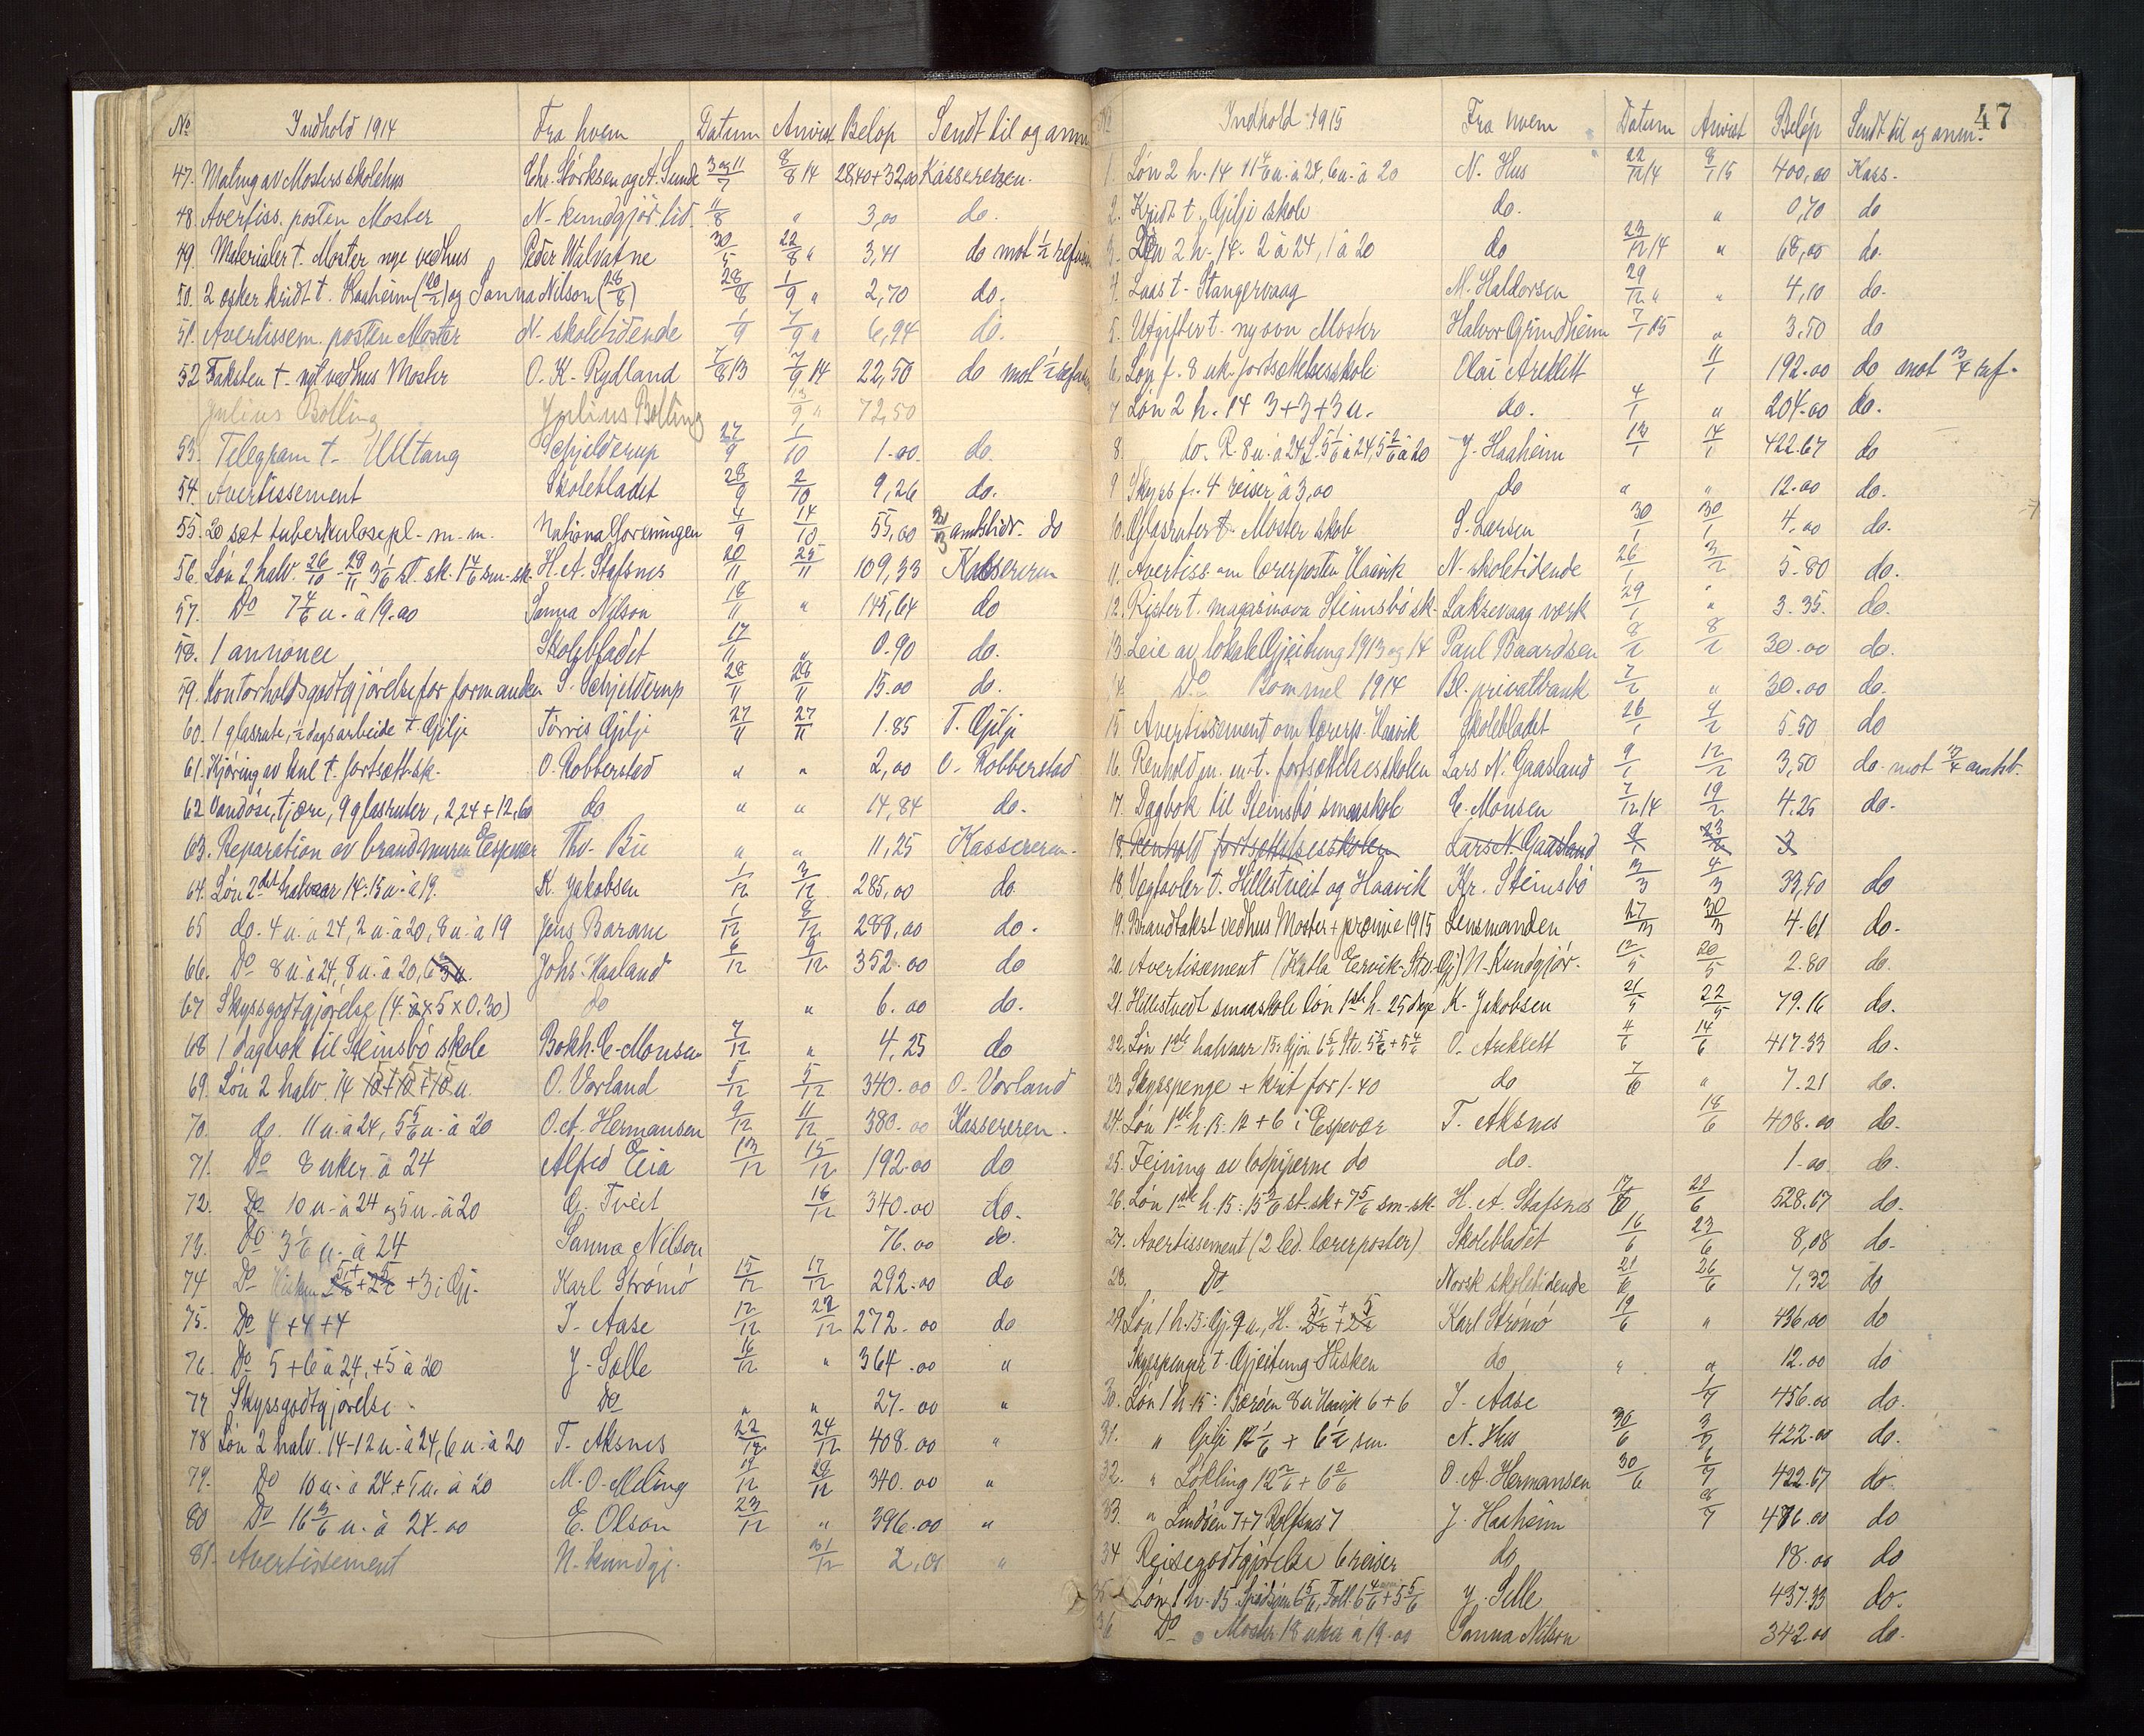 No Indhold 1914 Fra hvem Datum Anvist Beløp Sendt til og anm
47. Maling av Mosters skolehus Chr. Størksen og A. Sunde 3 og 11/7 8/8 14 28,40+32,00 Kassereren.
48. Avertiss. posten Moster N. kundgjør. tid. 11/8 " 3,00 do.
49. Materialer t. Moster nye vedhus Peder Walvatne 30/5 22/8 " 3,41 do mot 1/2 refusion
50. 2 æsker kridt t. Haaheim (20/2) og Sanna Nilson (28/8) 28/8 1/9 " 2,70 do.
51. Avertissem. posten Moster N. skoletidende 1/9 7/9 " 6,94 do.
52 Taksten t. nyt vedhus Moster O. K. Rydland 7/8 13 7/9 14 22,50 do mot 1/2
Julius Bolling Julius Bolling 13/9 " 72,50
53. Telegram t. Uttang Schjelderup 27/9 1/10 1.00 do
54. Avertissement Skolebladet 28/9 2/10 9,26 do.
55. 20 sæt tuberkulosepl. m. m. Nationalforeningen 4/9 14/10 55,00 do
56. Løn 2 halv. 26/10 - 28/11 3 1/6 st. sk. 1 4/6 sm. sk. H. A. Stafsnes 20/11 25/11 109,33 Kassereren
57. Do 7 4/6 u. à 19.00 Sanna Nilson 18/11 " 145,64 do
58. 1 annonce Skolebladet 17/11 " 0.90 do.
59. Kontorholdsgodtgjørelse for formanden S. Schjelderup 28/11 28/11 15.00 do.
60. 1 glasrute, 1/2 dags arbeide t. Gilje Torris Gilje 27/11 27/11 1.85 T. Gilje
61. Kjøring av kul t. fortsætt.sk. O. Robberstad " " 2,00 O. Robberstad
62 Vandøse, tjære, 9 glasruter, 2,24+12,60 do " " 14,84 do.
63. Reparation av brandmuren Espevær Thv. Bie " " 11,25 Kassereren.
64. Løn 2det halvaar 14: 15 u. à 19. K. Jakobsen 1/12 3/12 285,00 do
65 do. 4 u. à 24, 2 u. à 20, 8 u. à 19 Jens Barane 1/12 8/12 288,00 do.
66. Do 8 u. à 24, 8 u. à 20, Johs. Haaland 6/12 9/12 352.00 do
67 Skyssgodtgjørelse (4 à x 5 x 0,30) do " 6.00 do.
68 1 dagbok til Steinsbø skole Bokh. E. Monsen 7/12 " 4,25 do
69. Løn 2 halv. 14 u. O. Vorland 5/12 5/12 340.00 O. Vorland
70. do. 11 u. à 24, 5 5/6 u. à 20 O. A. Hermansen 9/12 11/12 380.00 Kassereren.
71. Do 8 uker à 24 Alfred Eia 13/12 15/12 192.00 do
72. Do 10 u. à 24 og 5 u. à 20 G. Tveit 16/12 340.00 do.
73. Do 3 1/6 u. à 24 Sanna Nilson 76.00 do.
74 Do Hisken + 3 i Gj. Karl Strømø 15/12 17/12 292.00 do
75. Do 4+4+4 I. Aase 12/12 22/12 272.00 do
76. Do 5+6 à 24, +5 à 20 J. Selle 16/12 " 364.00 "
77 Skyssgodtgjørelse. Do " " 27.00 "
78 Løn 2 halv. 14 - 12 u. à 24, 6 u. à 20 T. Aksnes 22/12 24/12 408.00 "
79. Do 10 u. à 24 + 5 u. à 20 M. O. Meling 19/12 29/12 340.00 "
80 Do 16 3/6 u. à 24.00 E. Olson 23/12 " 396.00 "
81. Avertissement N. kundgj. 31/12 2,08 "
47
No Indhold 1915 Fra hvem Datum Anvist Beløp Sendt til og anm.
1. Løn 2 h. 14 11 4/6 u. à 24, 6 u. à 20 N. Hus 22/12 14 8/1 15 400,00 Kass.
2. Kridt t. Gilje skole do. " 0,70 do
3. Løn 2 h. 14. 2 à 24, 1 à 20 do 23/12 14 " 68,00 do.
4. Laas t. Stangervaag M. Haldorsen 29/12 " " 4,10 do.
5. Utgifter t. ny ovn Moster Halvor Grindheim 7/1 15 " 3,50 do
6. Løn f. 8 uk. fortsættelsesskole Olai Areklett 11/1 192.00 do mot 3/4 ref.
7 Løn 2 h. 14 3+3+3 u. do. 4/1 " 204.00 do.
8. do. R. 8 u. à 24, L. 5 1/6 à 24, 5 2/6 à 20 J. Haaheim 13/1 14/1 422.67 do
9 Skyss f. 4 reiser à 3,00 do " " 12.00 do.
10. Glasruter t. Moster skole S. Larsen 30/1 30/1 4.00 do.
11. Avertiss. om lærerposten Haavik N. skoletidende 26/1 3/2 5.80 do.
12. Rister t. magasinovn Steinsbø sk. Laksevaag verk 29/1 " 3.35. do.
13. Leie av lokale Gjeitung 1913 og 14 Paul Baardsen 8/2 8/2 30.00 do.
14. Do Bømmel 1914 Bl. privatbank 2/2 " 30.00 do.
15 Avertissement om lærerp. Haavik Skolebladet 26/1 9/2 5.50 do
16. Renhold m. m. t. fortsættelsesskolen Lars N. Gaasland 9/1 12/2 3,50 do. mot 3/4 amtst.
17. Dagbok til Steinsbø smaaskole E. Monsen 7/12 14 19/2 4.25 do.
18. Renhold fortsættelsesskolen Lars N. Gaasland 23/2 3
18. Vegtavler t. Hillestveit og Haavik Kr. Steinsbø 3/3 4/3 33,50 do
19. Brandtakst vedhus Moster + præmie 1915 Lensmanden 27/3 30/3 4.61 do.
20. Avertissement (Katla Eervik. Stv. Gj) N. Kundgjør. 12/5 20/5 2.80 do.
21. Hillestvedt smaaskole løn 1ste h. 25 dage K. Jakobsen 21/5 22/5 79.16 do.
22. Løn 1ste halvaar 15: Gjøn 6 5/6 Stv. 5 5/6 + 5 4/6 O. Areklett 4/6 14/6 417.33 do.
23. Skysspenge + krit for 1.40 do 7/6 " 7.21 do.
24. Løn 1ste h. 15: 12+6 i Espevær T. Aksnes 18/6 408.00 do.
25. Feining av lodpiperne do do. 1.00 do.
26. Løn 1ste h. 15: 15 3/6 st. sk + 7 5/6 sm. sk. H. A. Stafsnes 17/6 21/6 528.67 do.
27. Avertissement (2 led. lærerposter) Skolebladet 16/6 23/6 8,08 do.
28. Do Norsk skoletidende 21/6 26/6 7,32 do
29 Løn 1 h. 15: Gj. 9 u., H. Karl Strømø 19/6 " 436,00 do
Skysspenger t. Gjeitung-Hisken do " " 12.00 do
30. Løn 1 h. 15: Børøen 8 u Haavik 6+6 I. Aase 1/7 456.00 do.
31. " Gilje 12 1/6 + 6 1/2 sm. N. Hus 30/6 3/7 422.00 do.
32. " Løkling 12 2/6 + 6 2/6 O. A. Hermansen 30/6 6/7 422.67 do.
33. " Lindøen 7+7 Rolfsnes 7 J. Haaheim 8/7 476.00 do
34 Reisegodtgjørelse 6 reiser do 18.00 do
35 Løn 1 h. 15 6 5/6, Føll. 6 4/6 + 5 5/6 J. Selle 437.33 do.
36 Do Moster 18 uker à 19.00 Sanna Nilson 342.00 do.